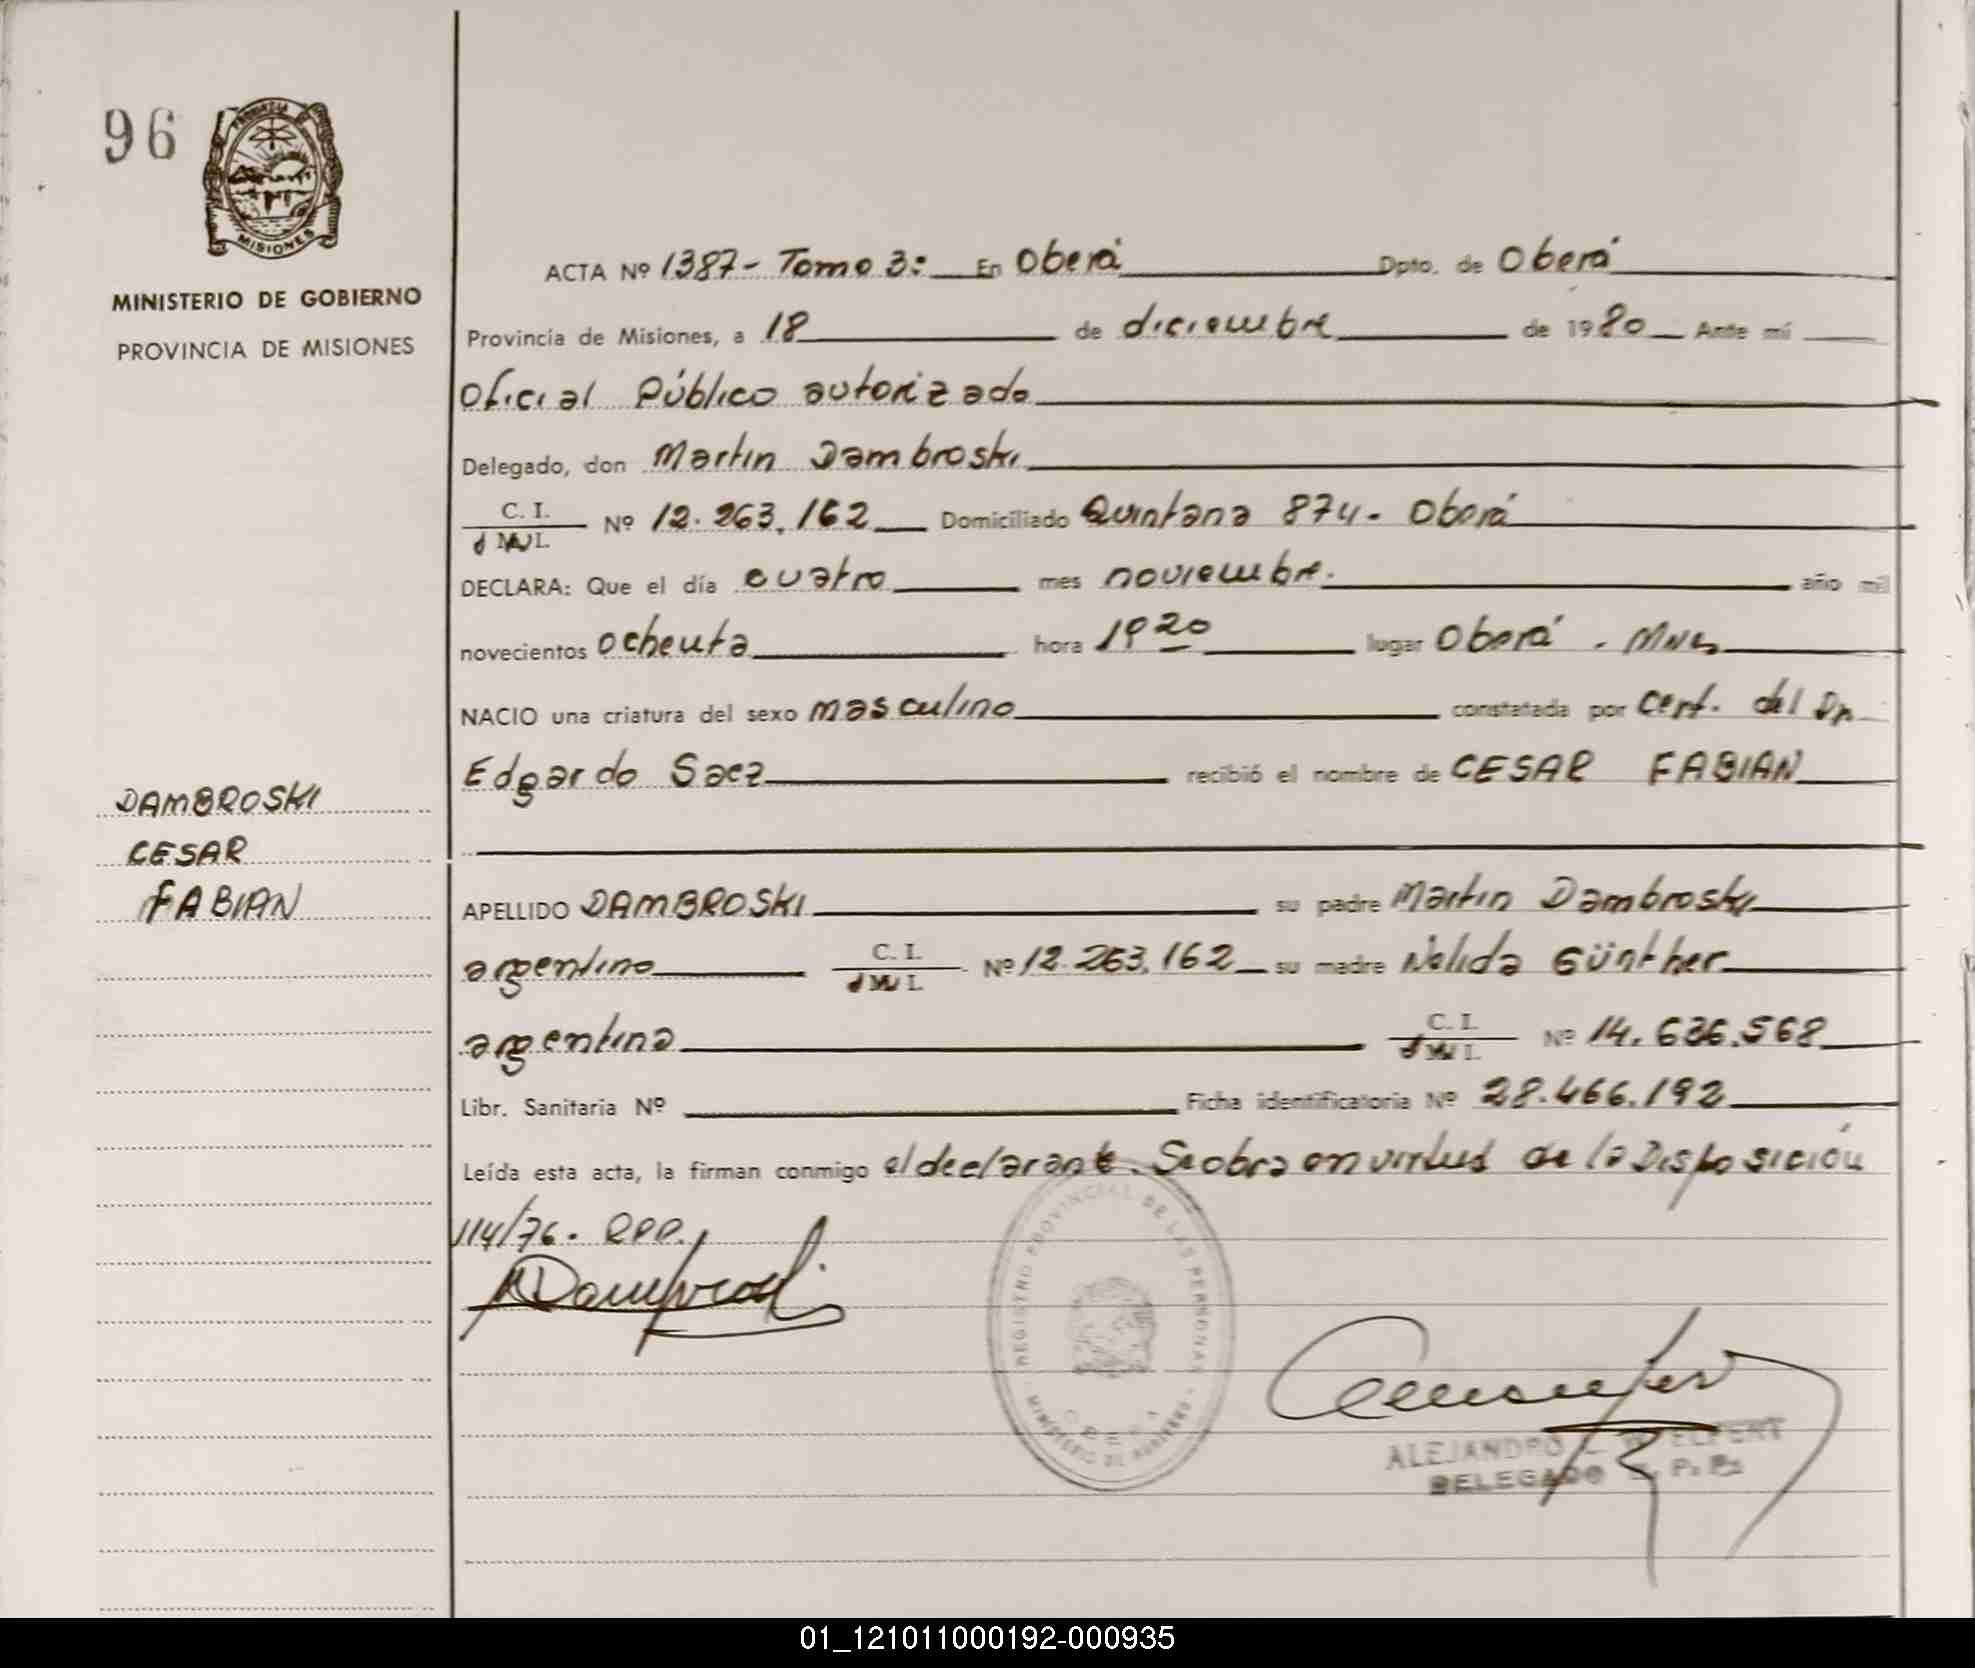 96
PROVINCIA DE
MISIONES
MINISTERIO DE GOBIERNO
PROVINCIA DE MISIONES
ACTA Nº 1387- Tomo 3: En Oberá Dpto. de Oberá
Provincia de Misiones, a 18 de diciembre de 1980 Ante mí
Oficial Público autorizado
Delegado, don Martin Dambroski
C. I.
Nº 12.263.162 Domiciliado Quintana 874. Oberá
DECLARA: Que el día cuatro mes noviembre. año mil
novecientos ochenta hora 19 20 lugar Oberá . Mnes
NACIO una criatura del sexo masculino constatada por cert. del Dr.
Edgardo Saez recibió el nombre de CESAR FABIAN
DAMBROSKI
CESAR
FABIAN
APELLIDO DAMBROSKI su padre Martin Dambroski
argentino C. I. Nº 12.263.162 su madre Nelida Günther
argentina C. I. Nº 14.636.568
Libr. Sanitaria Nº Ficha identificatoria Nº 28.466.192
Leída esta acta, la firman conmigo el declarante. Se obra en virtud de la Disposición
114/76. RPP.
REGISTRO PROVINCIAL DE LAS PERSONAS
MINISTERIO DE GOBIERNO
OBERA
ALEJANDRO
DELEGADO
01_121011000192-000935